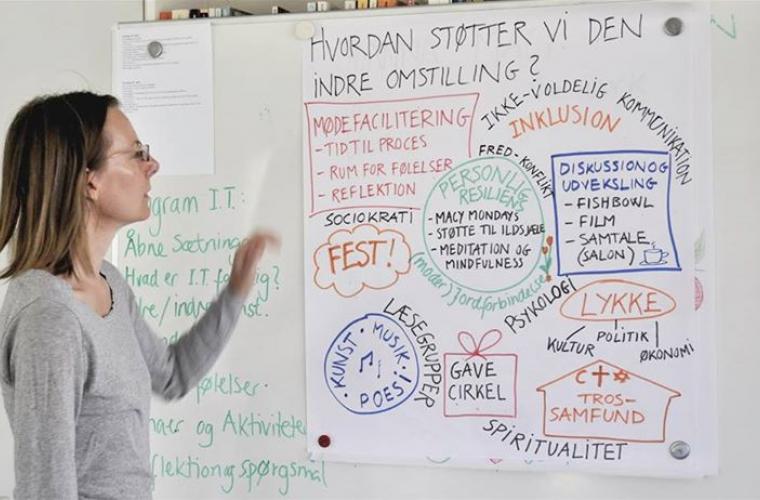 HVORDAN STØTTER VI DEN
INDRE OMSTILLING?
MØDEFACILITERING
- TID TIL PROCES
- RUM FOR FØLELSER
- REFLEKTION
IKKE-VOLDELIG KOMMUNIKATION
INKLUSION
FRED-KONFLIKT
SOCIOKRATI
FEST!
PERSONLIG
RESILIENS
- MACY MONDAYS
- STØTTE TIL ILDSJÆLE
- MEDITATION OG
MINDFULNESS
(moder) jordforbindelse
DISKUSSION OG
UDVEKSLING
- FISHBOWL
- FILM
- SAMTALE
(SALON)
PSYKOLOGI
LYKKE
KULTUR
POLITIK
ØKONOMI
KUNST · MUSIK · POESI ·
LÆSEGRUPPER
GAVE
CIRKEL
TROS-
SAMFUND
SPIRITUALITET
ogram I.T.:
Åbne Sætninger
Hvad er I.T. for dig?
følelser.
og Aktiviteter
flektion og spørgsmål